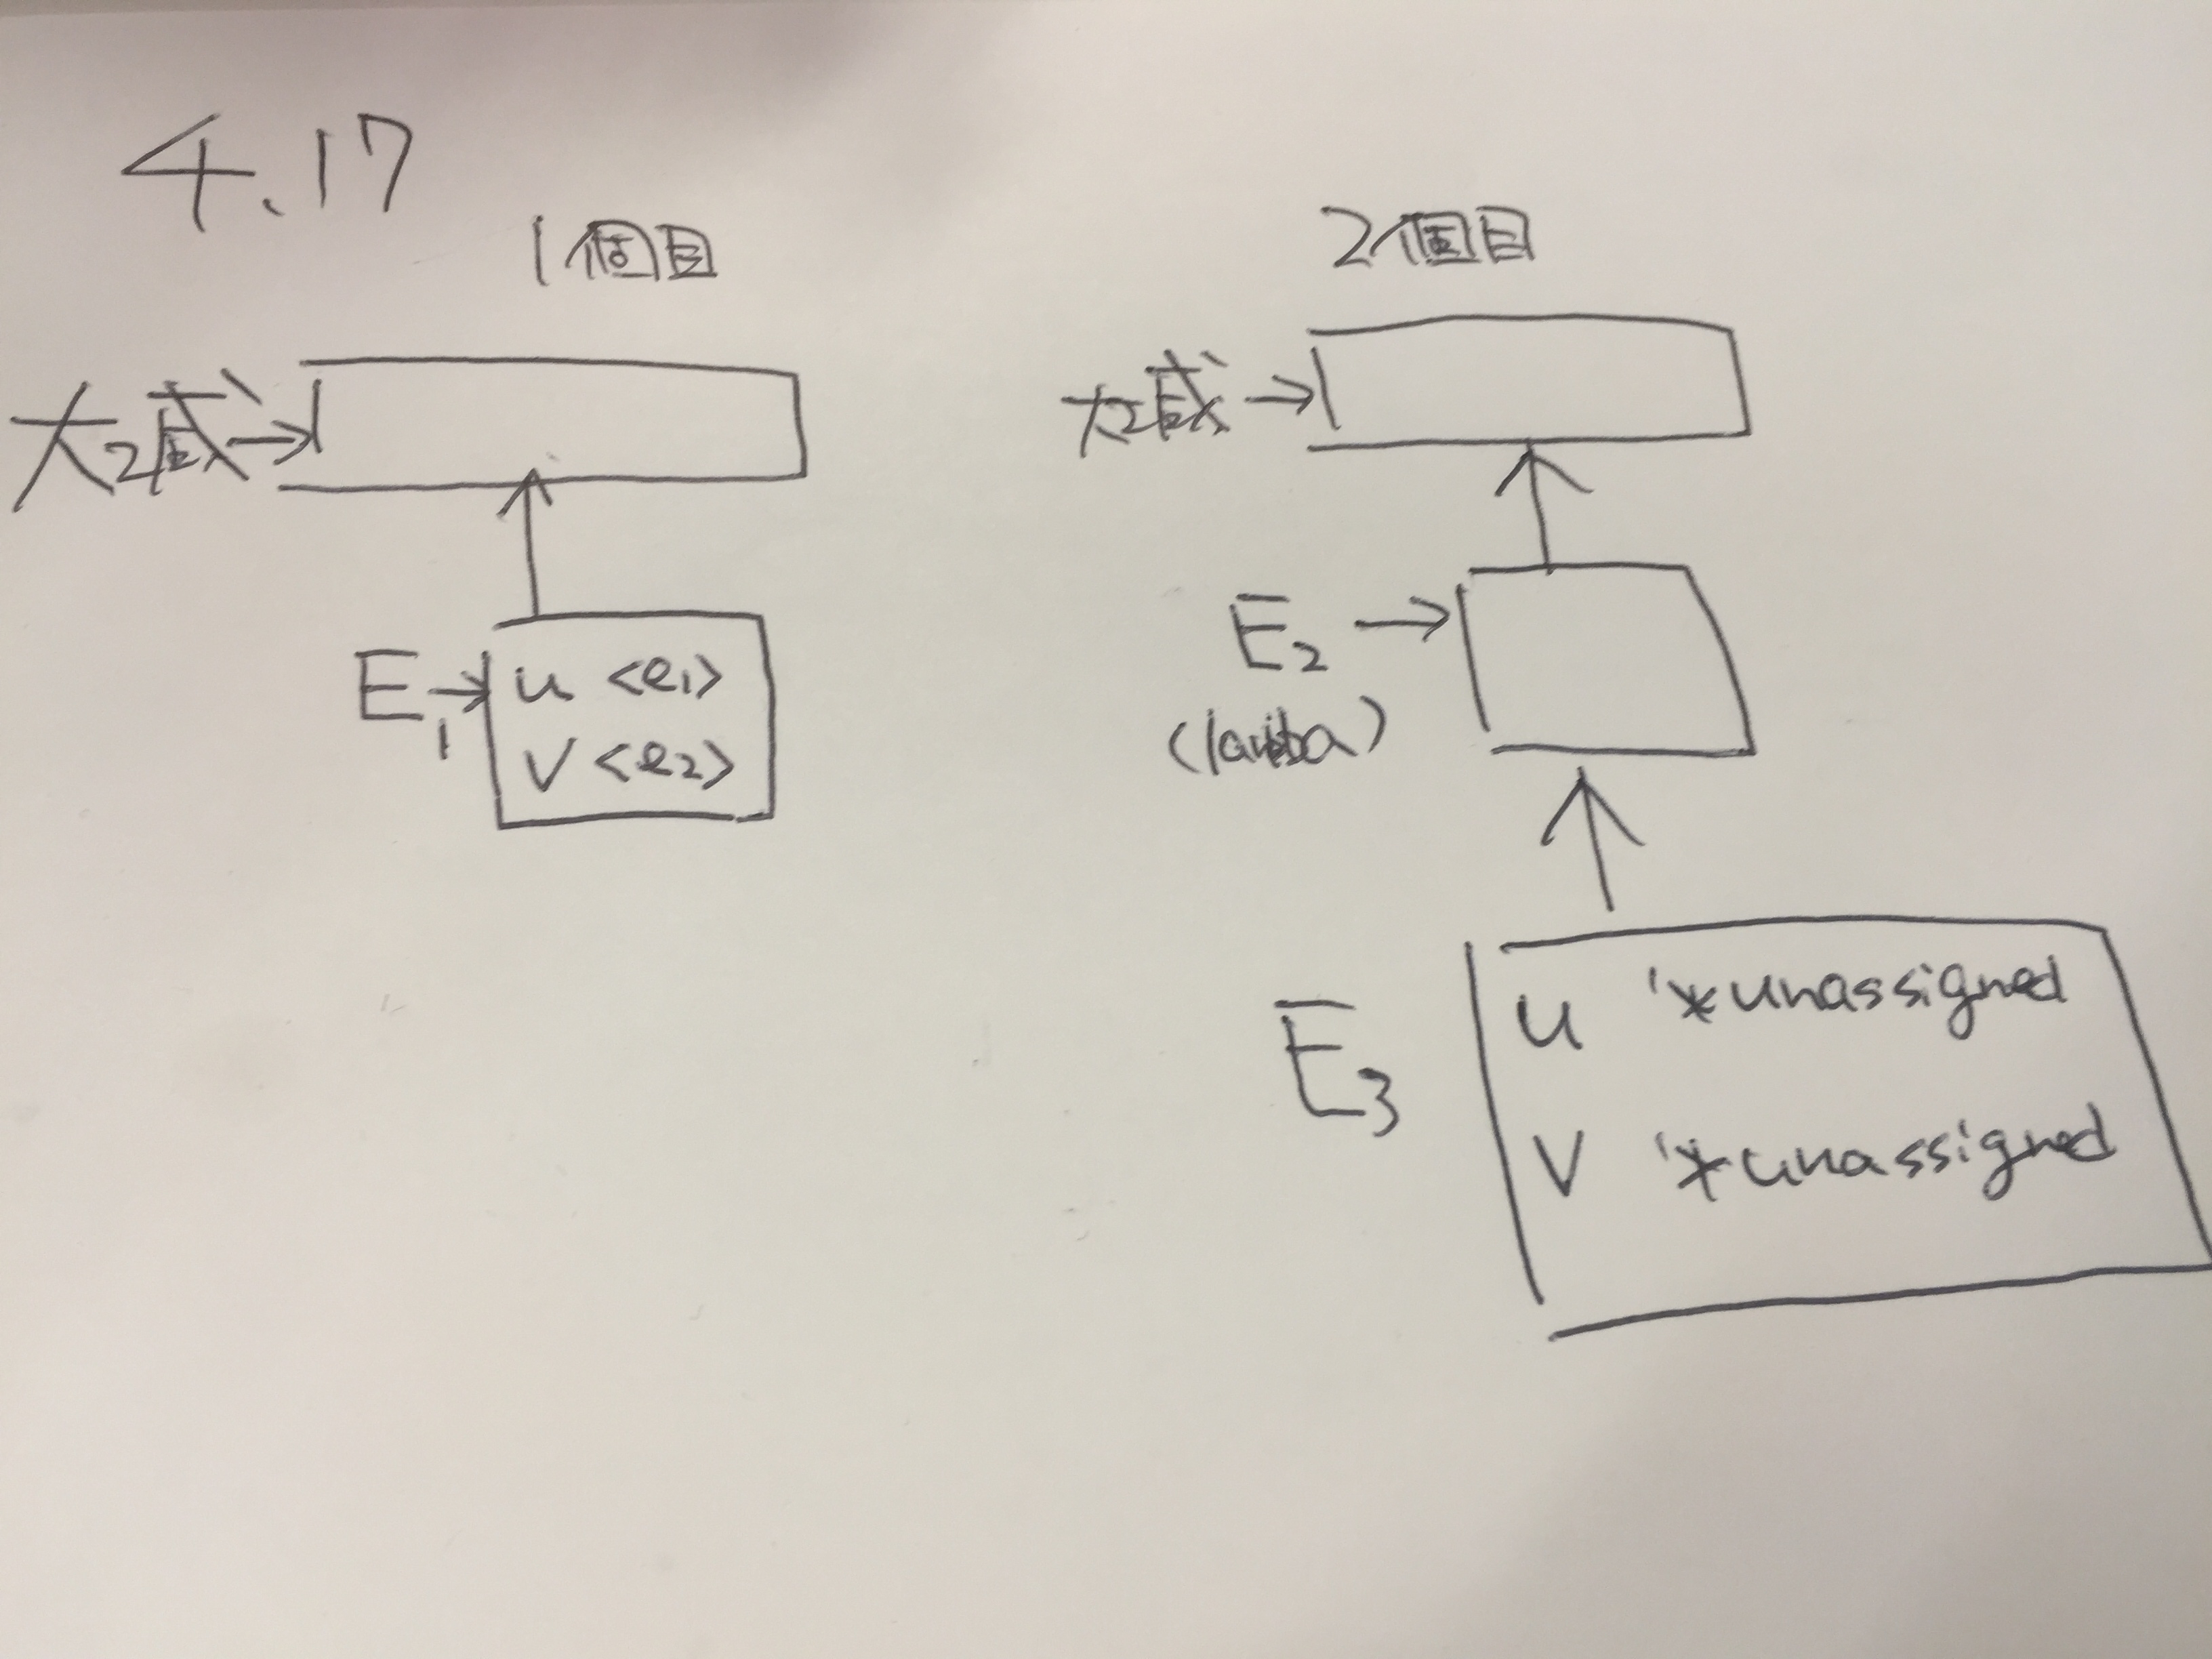 4.17
1個目
大域→
E1→
u <e1>
v <e2>
2個目
大域→
E2→
(lamba)
E3
u '*unassigned
v '*unassigned